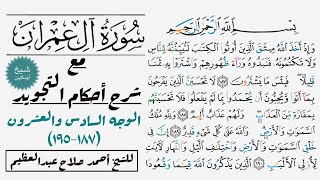 سورة آل عمران
مع
شرح أحكام التجويد
الوجه السادس والعشرون
(١٨٧-١٩٥)
للشيخ أحمد صلاح عبدالعظيم
بِسْمِ اللَّهِ الرَّحْمَٰنِ الرَّحِيمِ
وَإِذْ أَخَذَ اللَّهُ مِيثَٰقَ الَّذِينَ أُوتُوا الْكِتَٰبَ لَتُبَيِّنُنَّهُ لِلنَّاسِ
وَلَا تَكْتُمُونَهُ فَنَبَذُوهُ وَرَاءَ ظُهُورِهِمْ وَاشْتَرَوْا بِهِ ثَمَنًا
قَلِيلًا فَبِئْسَ مَا يَشْتَرُونَ ١٨٧ لَا تَحْسَبَنَّ الَّذِينَ يَفْرَحُونَ
بِمَا أَتَوا وَّيُحِبُّونَ أَن يُحْمَدُوا بِمَا لَمْ يَفْعَلُوا فَلَا تَحْسَبَنَّهُم
بِمَفَازَةٍ مِّنَ الْعَذَابِ وَلَهُمْ عَذَابٌ أَلِيمٌ ١٨٨ وَلِلَّهِ مُلْكُ
السَّمَٰوَٰتِ وَالْأَرْضِ وَاللَّهُ عَلَىٰ كُلِّ شَيْءٍ قَدِيرٌ ١٨٩ إِنَّ فِي خَلْقِ
السَّمَٰوَٰتِ وَالْأَرْضِ وَاخْتِلَٰفِ اللَّيْلِ وَالنَّهَارِ لَـَٔايَٰتٍ
لِّأُولِي الْأَلْبَٰبِ ١٩٠ الَّذِينَ يَذْكُرُونَ اللَّهَ قِيَٰمًا وَقُعُودًا